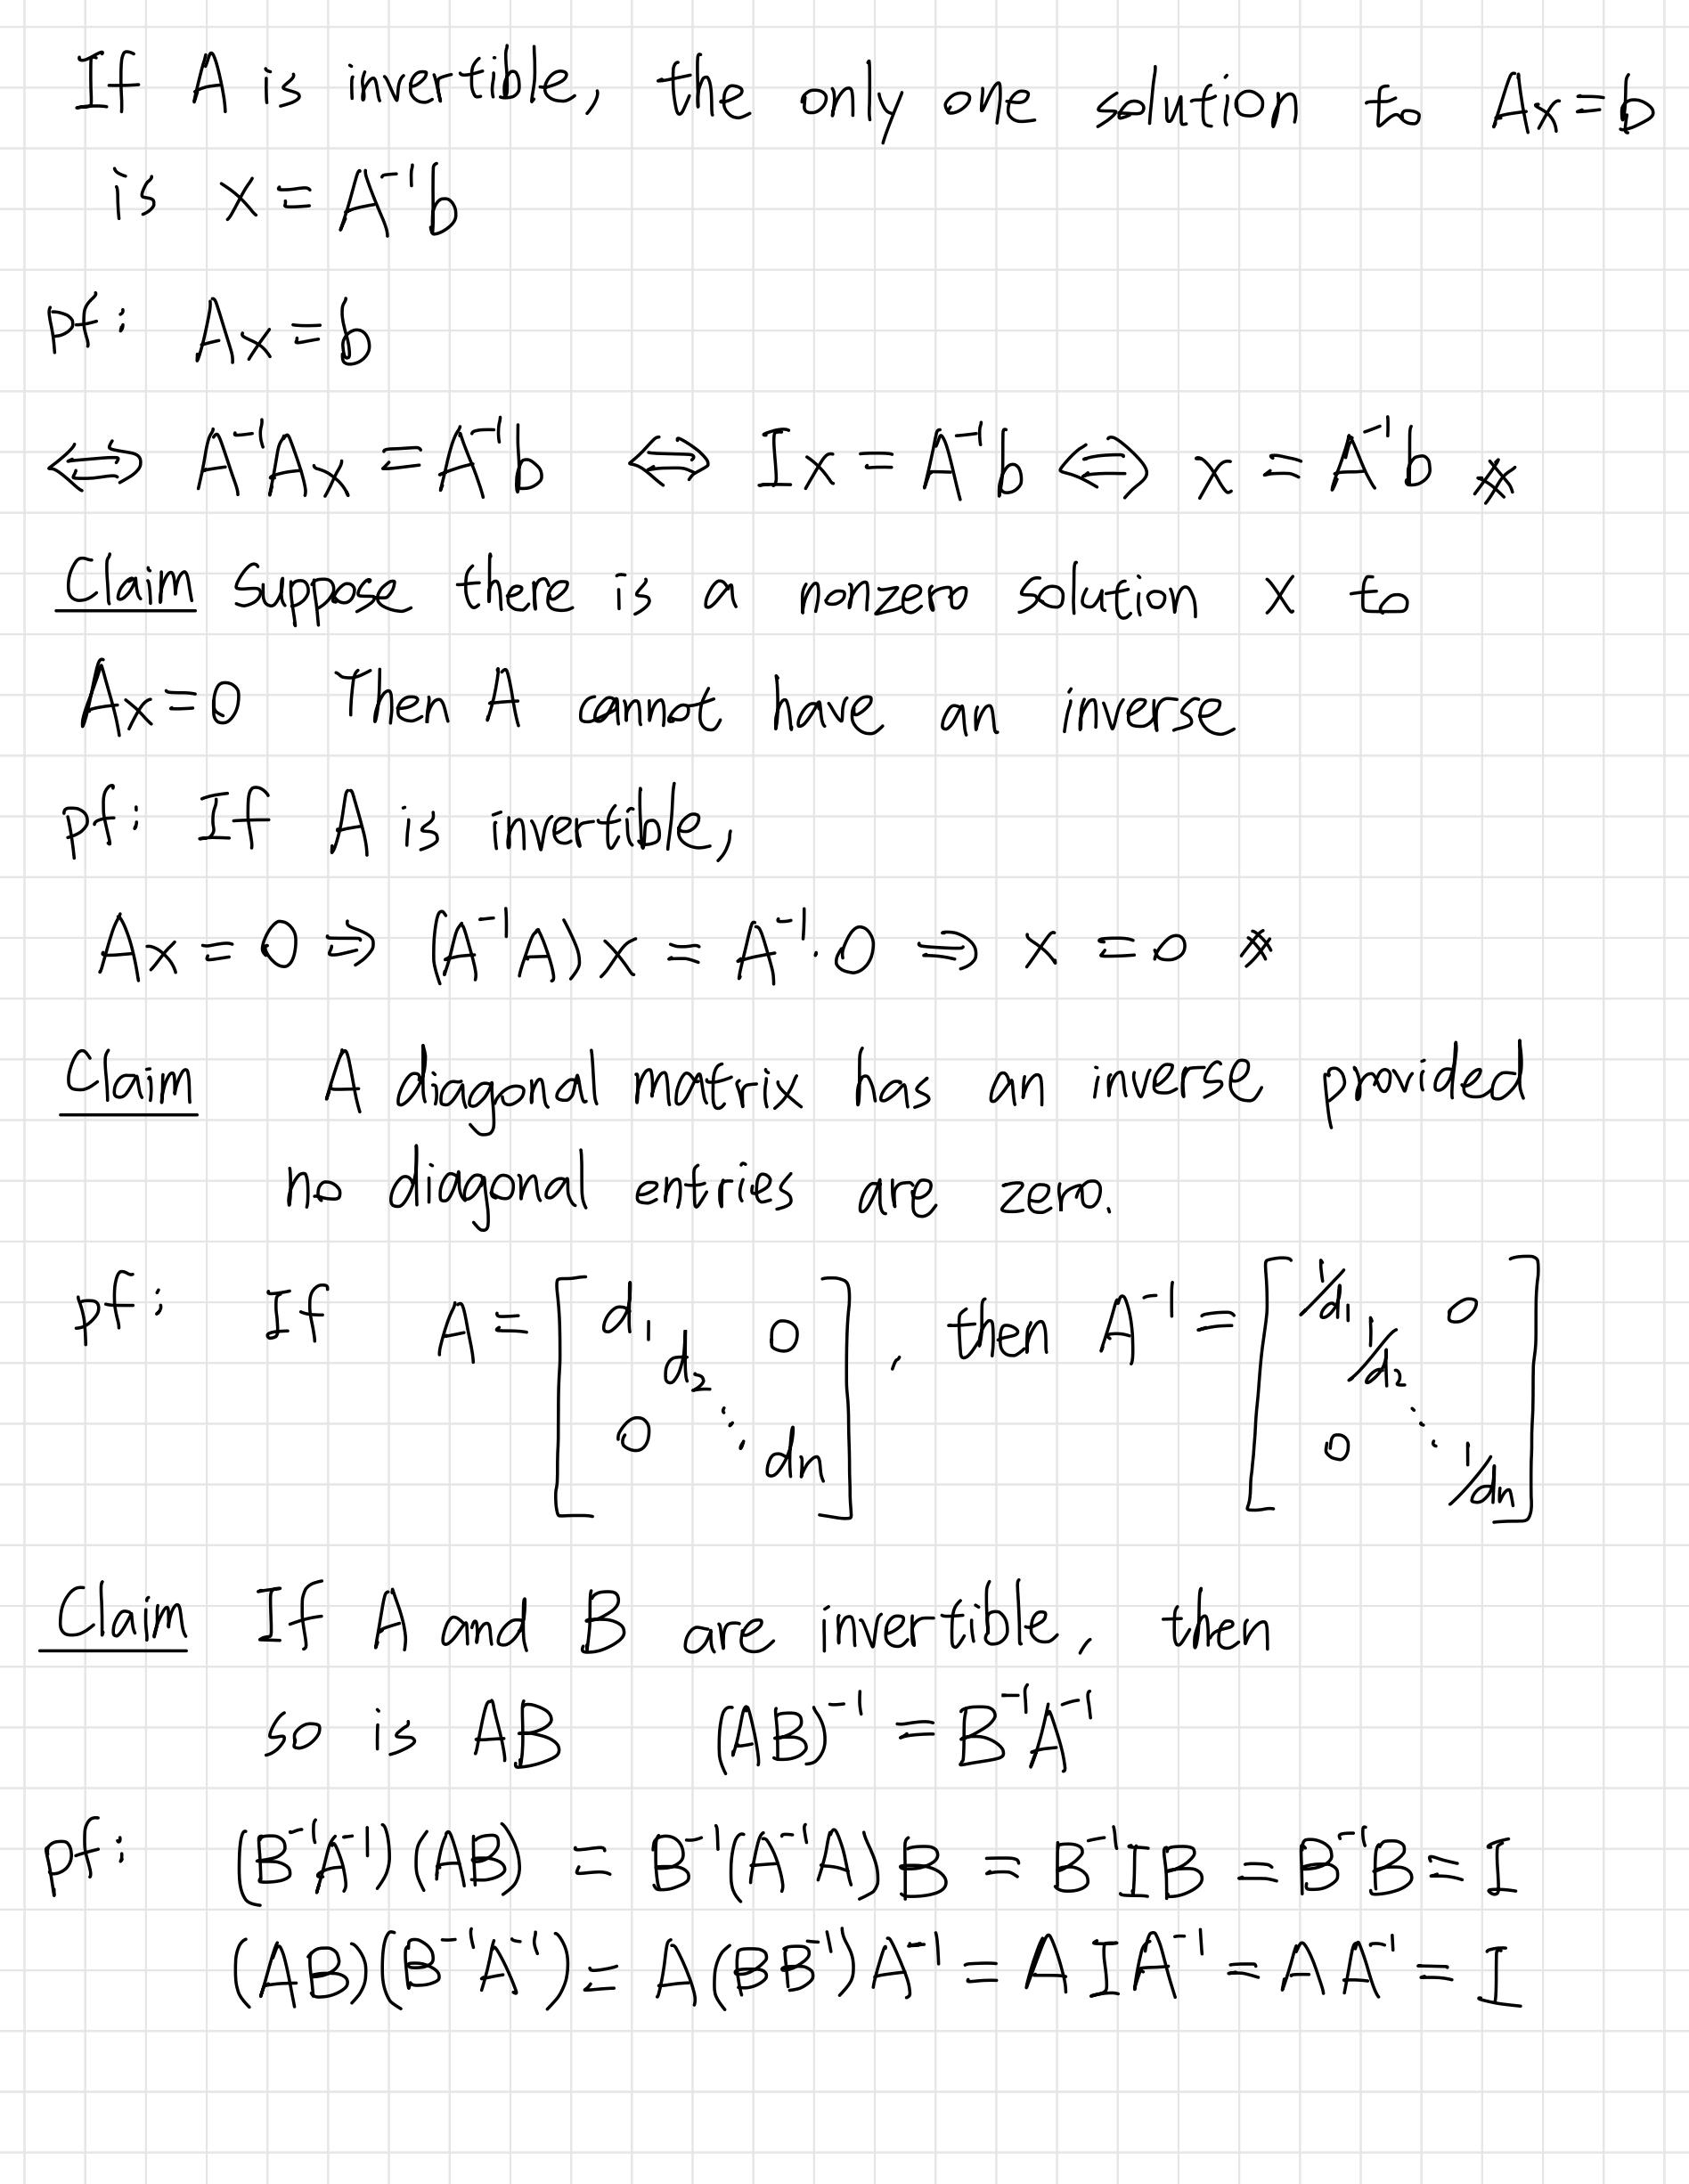 If A is invertible, the only one solution to Ax=b
is x=A⁻¹b
pf: Ax=b
⇔ A⁻¹Ax=A⁻¹b ⇔ Ix=A⁻¹b ⇔ x=A⁻¹b ※
Claim suppose there is a nonzero solution x to
Ax=0 Then A cannot have an inverse
pf: If A is invertible,
Ax=0 ⇒ (A⁻¹A)x = A⁻¹·0 ⇒ x=0 ※
Claim A diagonal matrix has an inverse provided
no diagonal entries are zero.
pf: If A = [d₁ d₂ ⋱ dn 0 0], then A⁻¹ = [1/d₁ 1/d₂ ⋱ 1/dn 0 0]
Claim If A and B are invertible, then
so is AB (AB)⁻¹ = B⁻¹A⁻¹
pf: (B⁻¹A⁻¹)(AB) = B⁻¹(A⁻¹A)B = B⁻¹IB = B⁻¹B = I
(AB)(B⁻¹A⁻¹) = A(BB⁻¹)A⁻¹ = AIA⁻¹ = AA⁻¹ = I